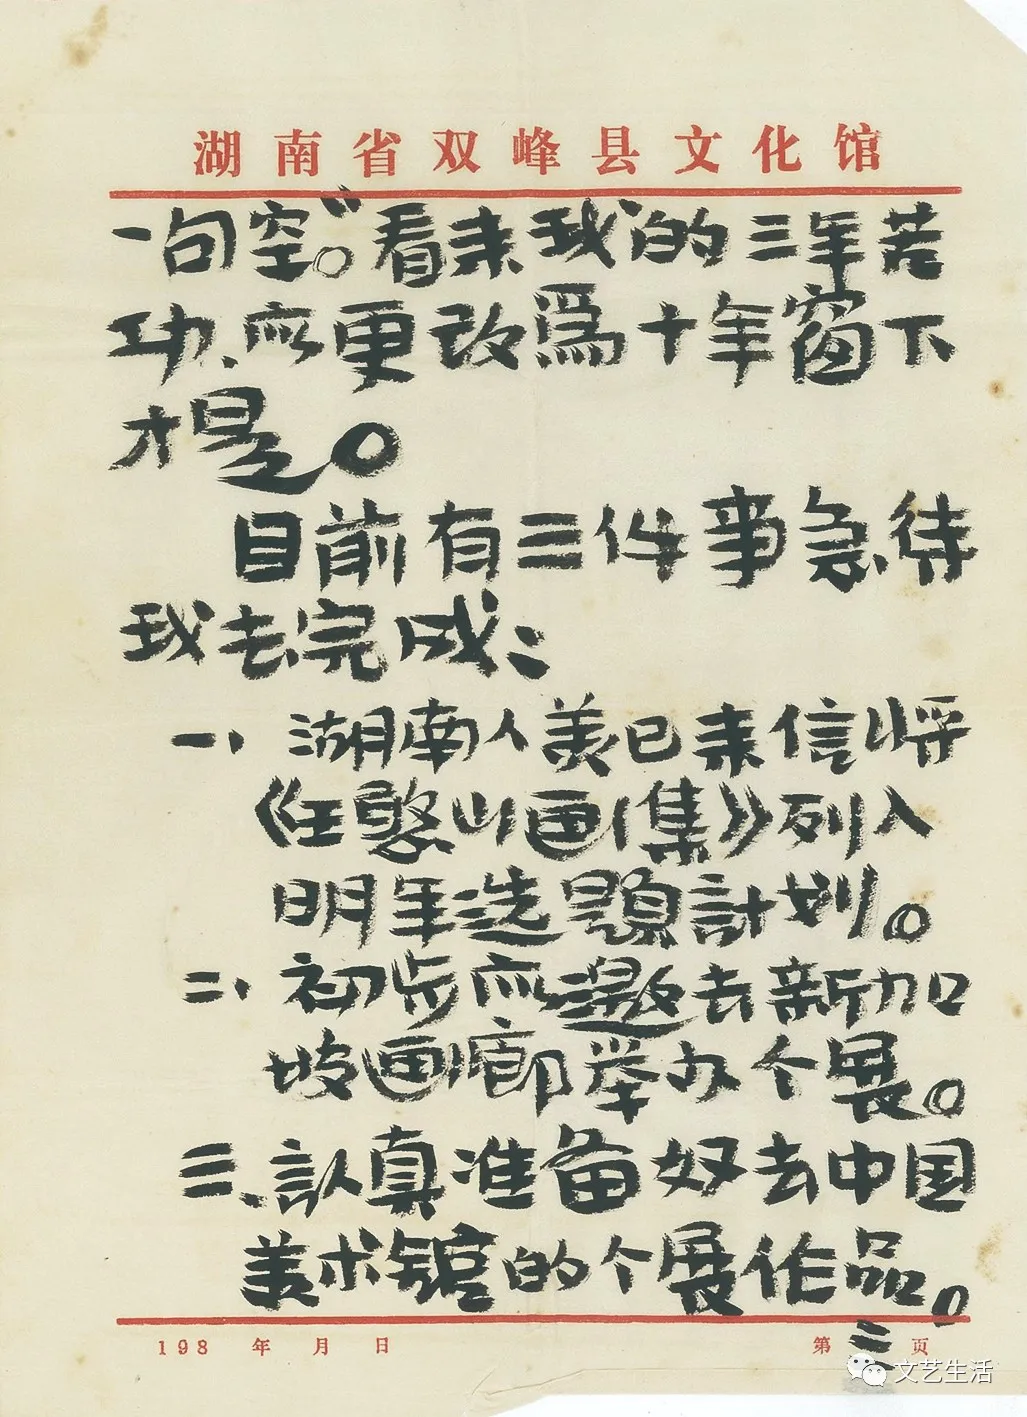 湖南省双峰县文化馆
一句空。”看来我的三年苦
功、应更改為十年窗下
才是。
目前有三件事急待
我去完成：
一、湖南人美已来信将
《王憨山画集》列入
明年选题計划。
二、初步应邀去新加
坡画廊举办个展。
三、認真准备好去中国
美术館的个展作品。
198 年 月 日
第 二 页
文艺生活